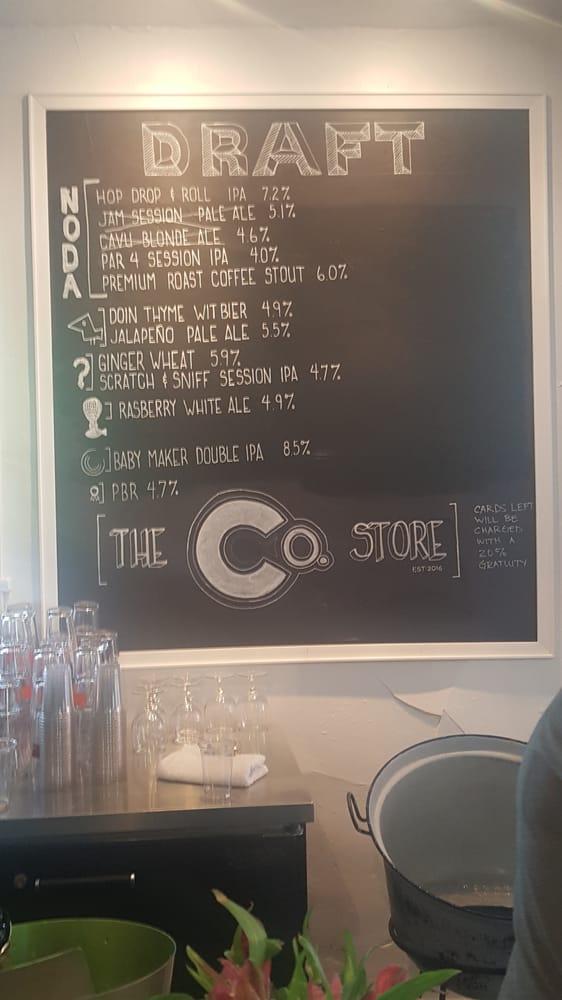 DRAFT
NODA
HOP DROP & ROLL IPA 7.2%
JAM SESSION PALE ALE 5.1%
CAVU BLONDE ALE 4.6%
PAR 4 SESSION IPA 4.0%
PREMIUM ROAST COFFEE STOUT 6.0%
DOIN THYME WITBIER 4.9%
JALAPEÑO PALE ALE 5.5%
? GINGER WHEAT 5.9%
SCRATCH & SNIFF SESSION IPA 4.7%
RASBERRY WHITE ALE 4.9%
BABY MAKER DOUBLE IPA 8.5%
PBR 4.7%
[THE Co. STORE]
EST 2016
CARDS LEFT
WILL BE
CHARGED
WITH A
20%
GRATUITY